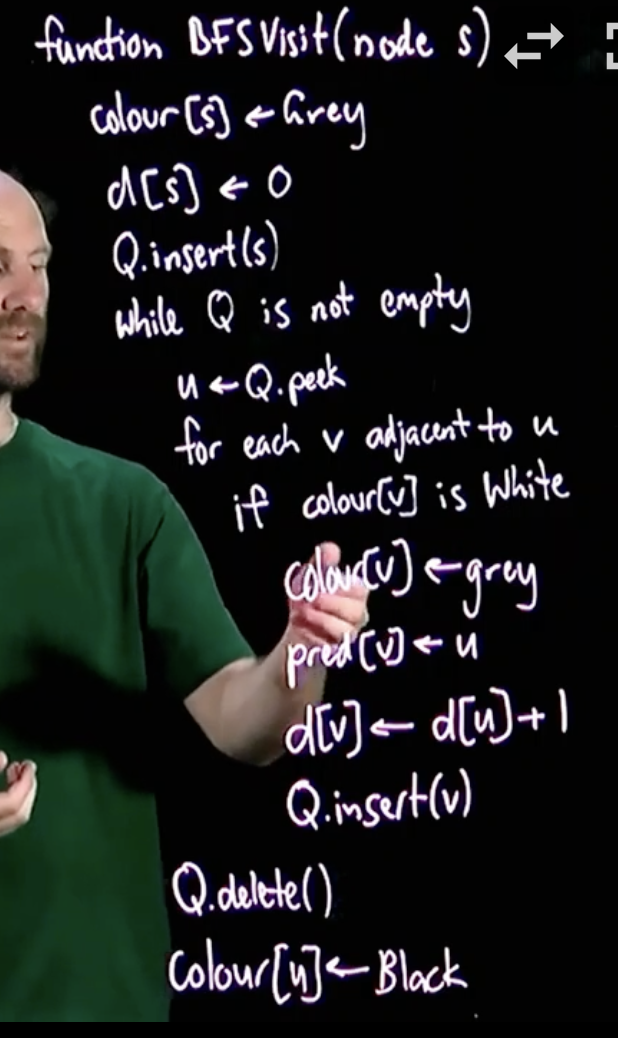 function BFSVisit(node s)
colour[s] ← Grey
d[s] ← 0
Q.insert(s)
while Q is not empty
u ← Q.peek
for each v adjacent to u
if colour[v] is White
colour[v] ← grey
pred[v] ← u
d[v] ← d[u] + 1
Q.insert(v)
Q.delete()
Colour[u] ← Black